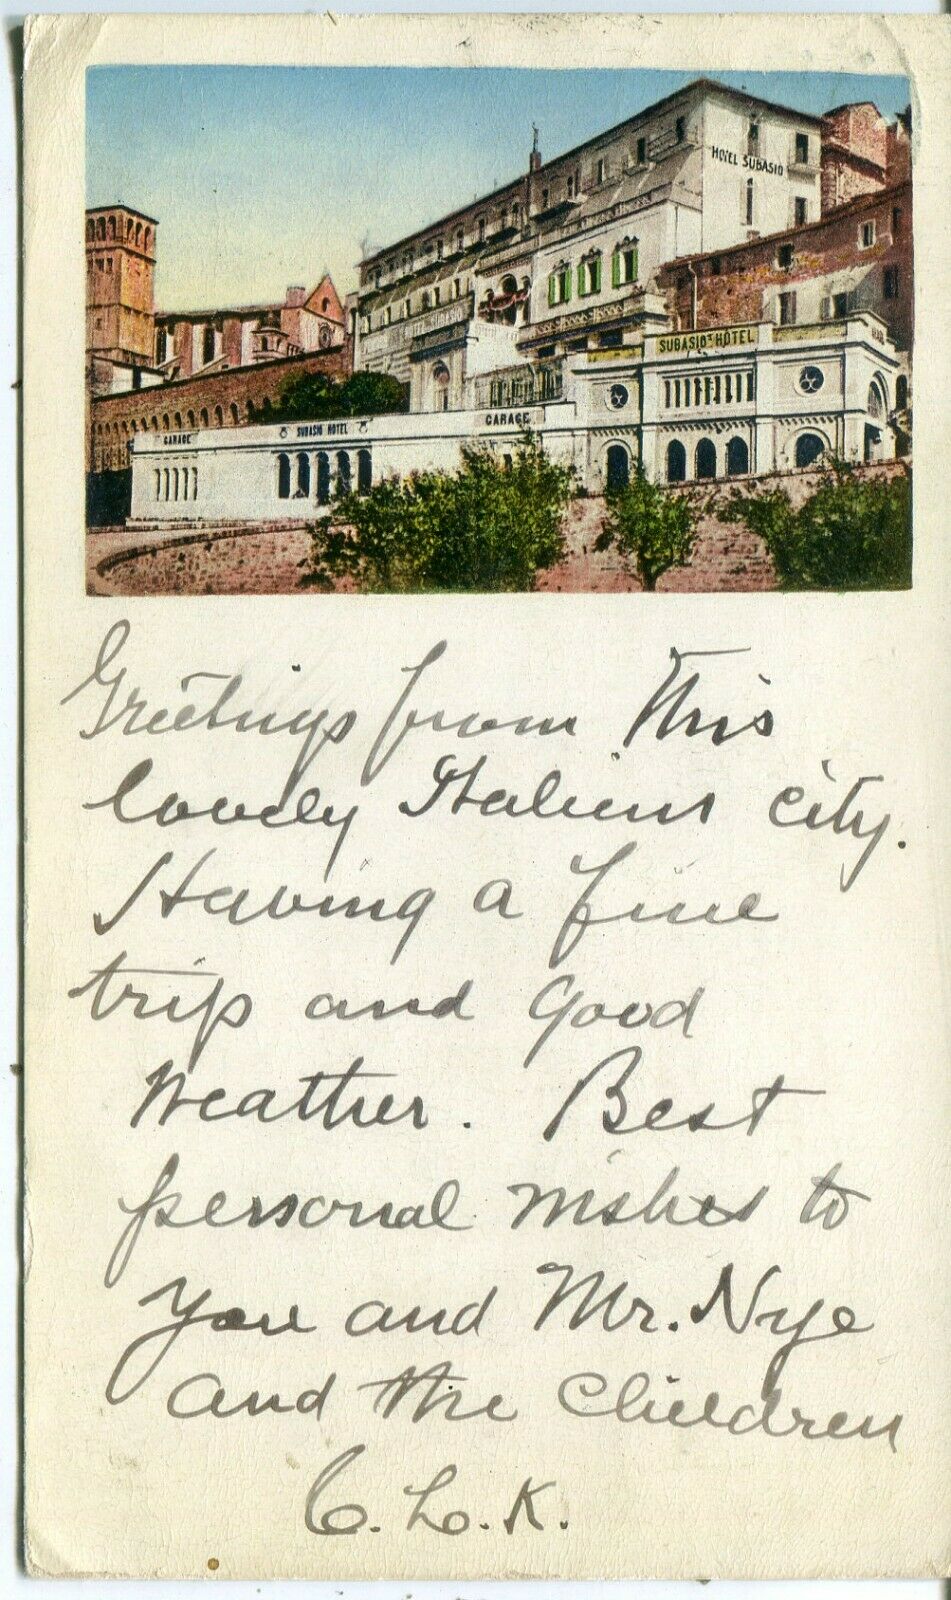 HOTEL SUBASIO
SUBASIO'S HOTEL
GARAGE
GARAGE
SUBASIO HOTEL
Greetings from this
lovely Italian city.
Having a fine
trip and good
weather. Best
personal wishes to
you and Mr. Nye
and the children
C. L. K.